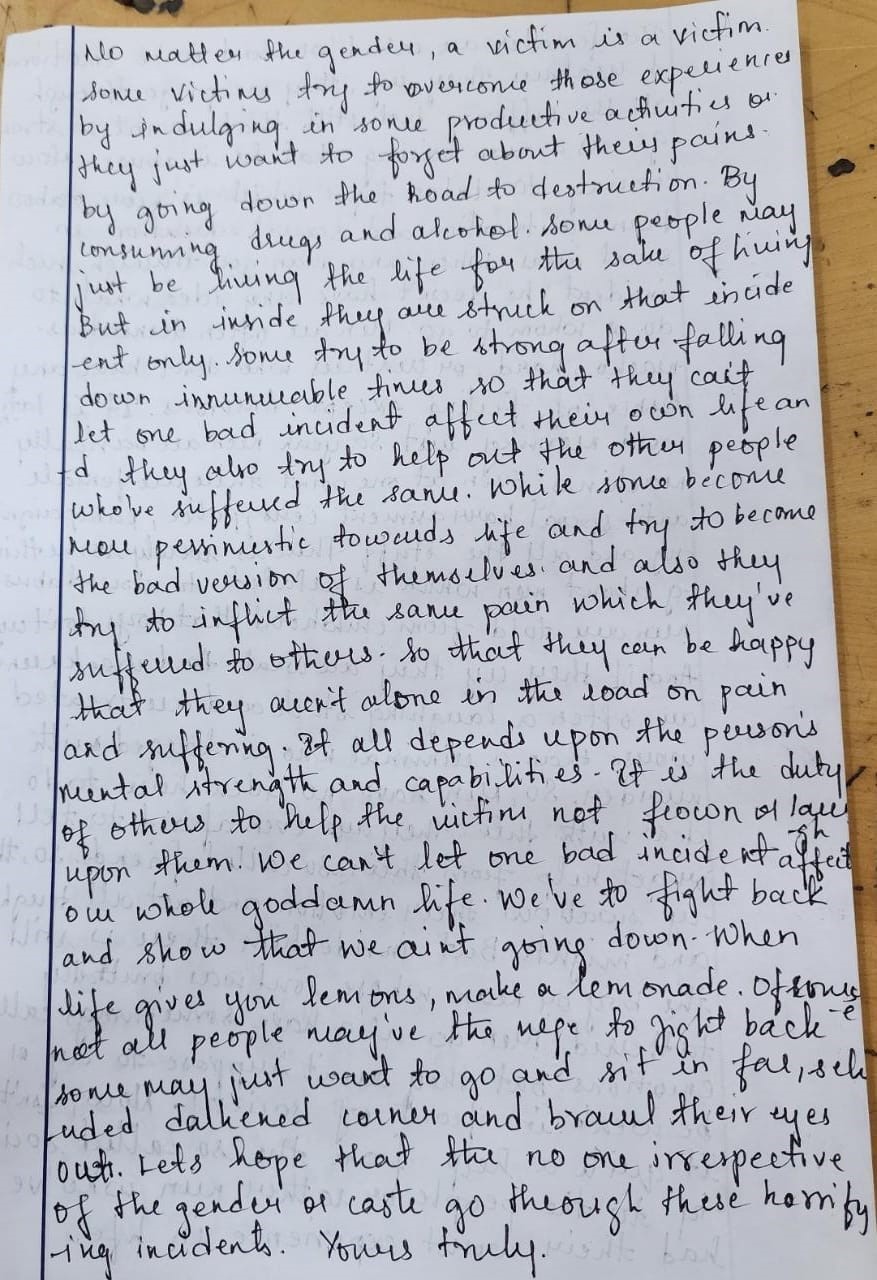 No matter the gender, a victim is a victim.
some victims try to overcome those experiences
by indulging in some productive activities or
they just want to forget about their pains.
by going down the road to destruction. By
consuming drugs and alcohol. Some people may
just be living the life for the sake of living
But in inside they are struck on that incide
-ent only. Some try to be strong after falling
down innumerable times so that they can't
let one bad incident affect their own life an
-d they also try to help out the other people
who've suffered the same. While some become
more pessimistic towards life and try to become
the bad version of themselves. and also they
try to inflict the same pain which they've
suffered to others. So that they can be happy
that they aren't alone in the road on pain
and suffering. It all depends upon the person's
mental strength and capabilities. It is the duty
of others to help the victim not frown or laugh
upon them. We can't let one bad incident affect
our whole goddamn life. We've to fight back
and show that we aint going down. When
life gives you lemons, make a lemonade. Ofcourse
not all people may've the to fight back
some may just want to go and sit in far, sec
-luded darkened corner and brawl their eyes
out. Lets hope that the no one irrespective
of the gender or caste go through these horrify
-ing incidents. Yours truly.